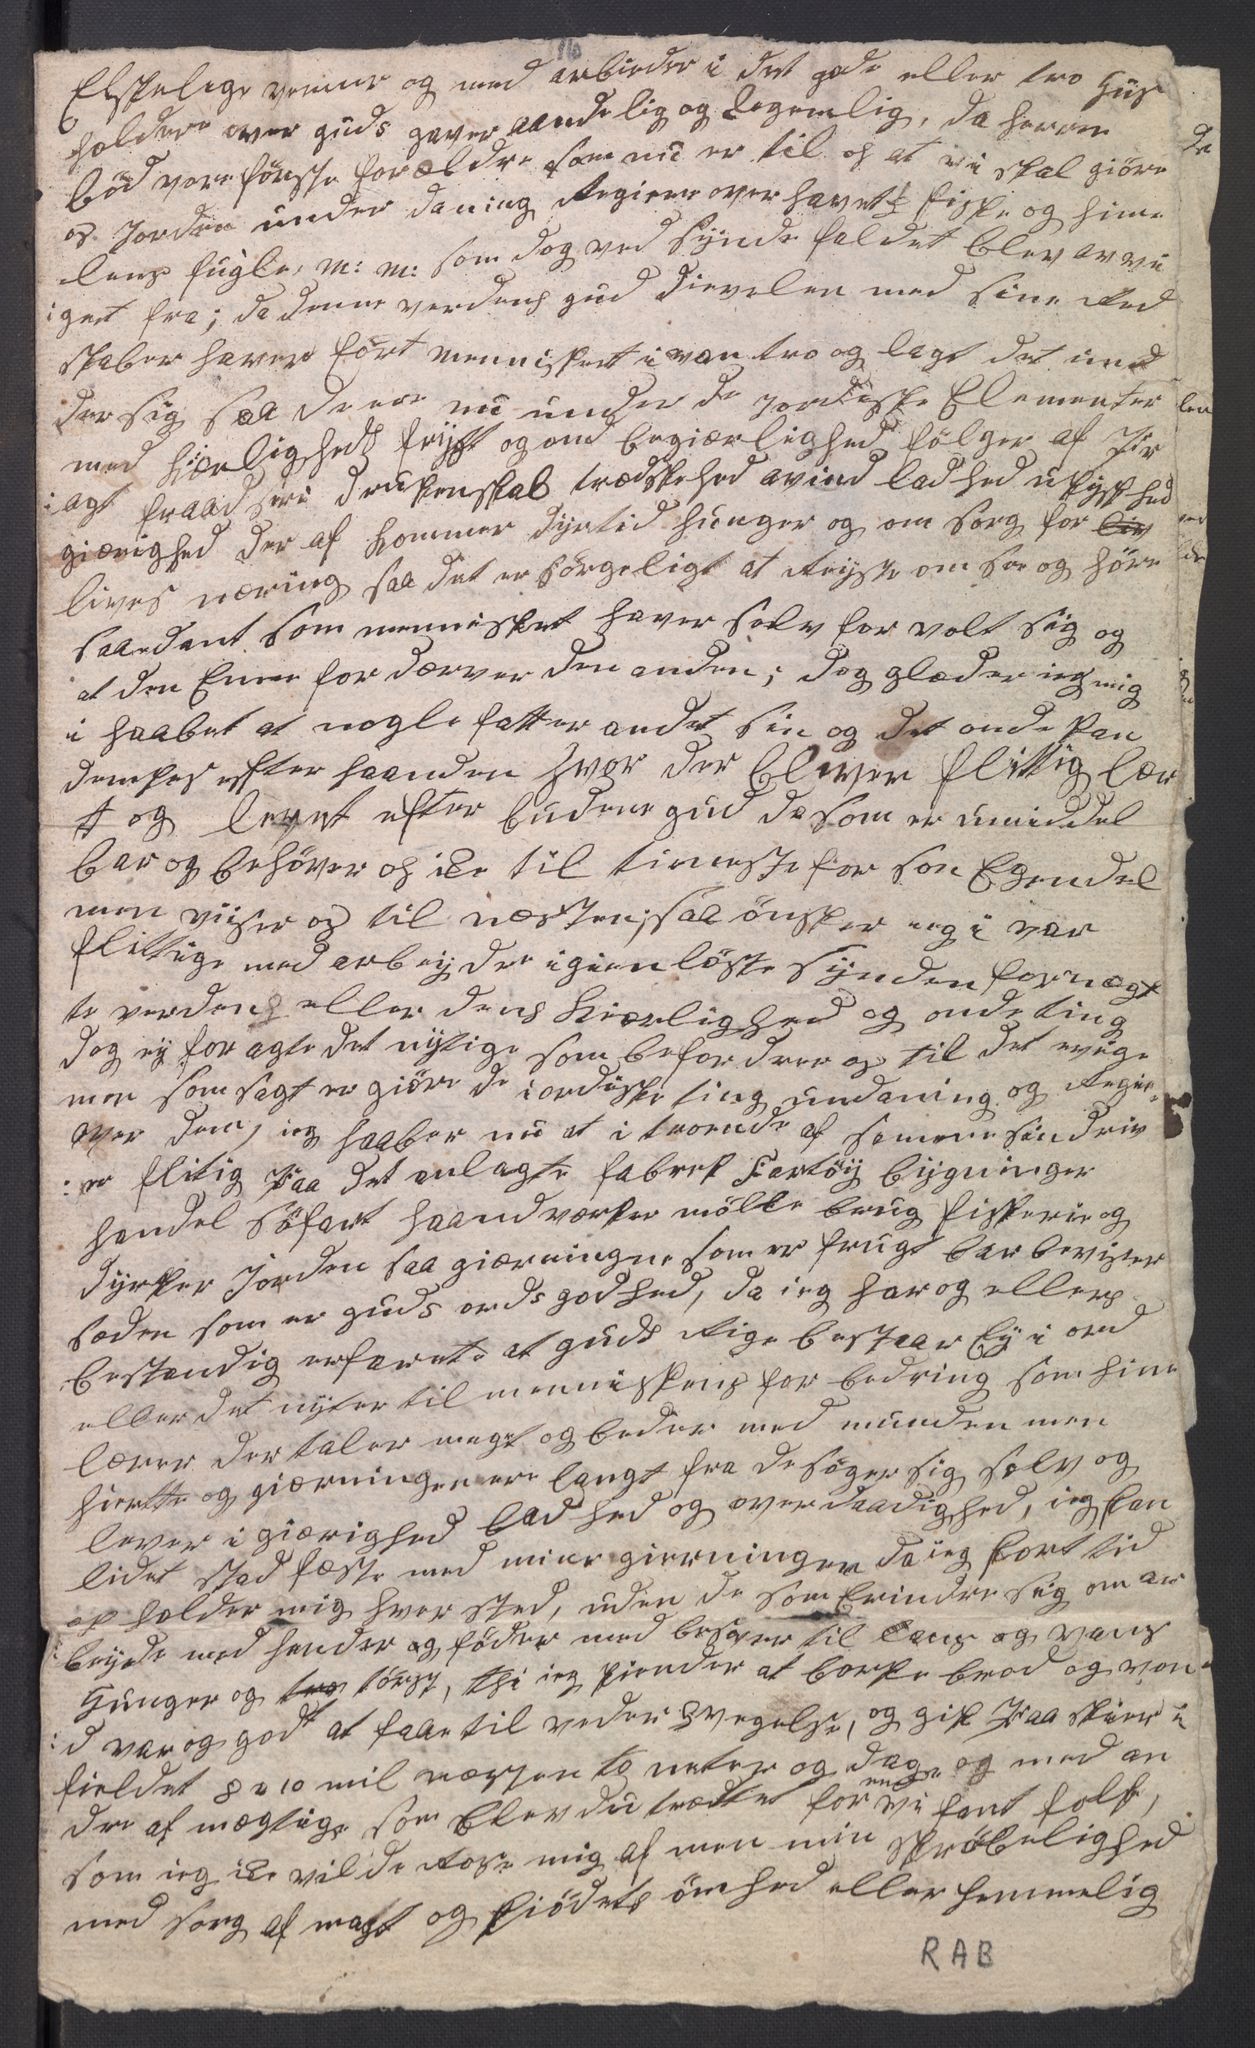 Elskelige venner og med arbieder i det gode eller tro Hüs
holdere over guds gaver aandelig og legemlig, da herren
bød vore første forældre som nü er til os at vi skal giöre
os Jorden under daning Regiere over havets fiske og hime
lens fugle, m: m: som dog ved Sÿnde faldet blev arvu
iget fra; da denne verdens gud dievelen med sine Red
skaber haver fört mennisket i van tro og lagt det und
der sig saa de ere nü under de jordiske Elementer
med kierligheds frÿgt og ond begiærlighed følger af
agt fraadseri drukenskab trædskehed avind ladhed ukÿskhed
gierighed der af kommer dyrtid hunger og om sorg for liv
lives næring saa det er sörgeligt at Reyse om see og höre
saadant som mennisket haver selv for volt sig og
at den Ene for dærver den anden; dog glæder ieg mig
i haabet at nogle fatter andet sin og det onde kan
dempes efter haanden hvor der bliver flittig lær
t og levet efter budene gud de som er umiddel
bar og behöver os ike til tieneste for sin Egendel
men viiser os til næsten; saa önsker ieg i var
flittige med arbeyder igienløste Sÿnden fornægt
te verdens eller dens kierlighed og onde ting
dog eÿ for agte det nÿtige som befordrer os til det evige
men som sagt er giöre de iordiske ting undaning og Regier
over dem, ieg haaber nü at i troende af samme sin driv
er flitig paa det anlagte fabrek Fartöÿ bÿgninger
handel söfart haandværker mölle brug fiskerie og
dÿrker Jorden saa gierningne som er frugt bar beviser
sæden som er guds ords godhed, da ieg har og ellers
bestandig erfaret at guds Rige bestaar Eÿ i ord
eller det nÿter til menniskens for bedring som hine
lærer der taler megt og beder med munden men
hierte og gierningen ere langt fra de söger sig selv og
lever i gierighed ladhed og overdaadighed, ieg kan
lidet stad fæste med mine gierninger da ieg kort tid
op holder mig hver sted, uden de som Erindre sig om ar
beÿde med hender og föder med besver til lans og vans
Hunger og törst, thi ieg kiender at barke brød og van
d var og god at faae til veder qvegelse, og gik paa skier i
fieldet 8 a 10 mil næsten to neter og dage og med an
dre af mægtige som blev du trættet for end vi fant folk,
som ieg ike vilde Rose mig af men min skröbelighed
med sorg af magt og kiödets ömhed eller hemmelig
RAB